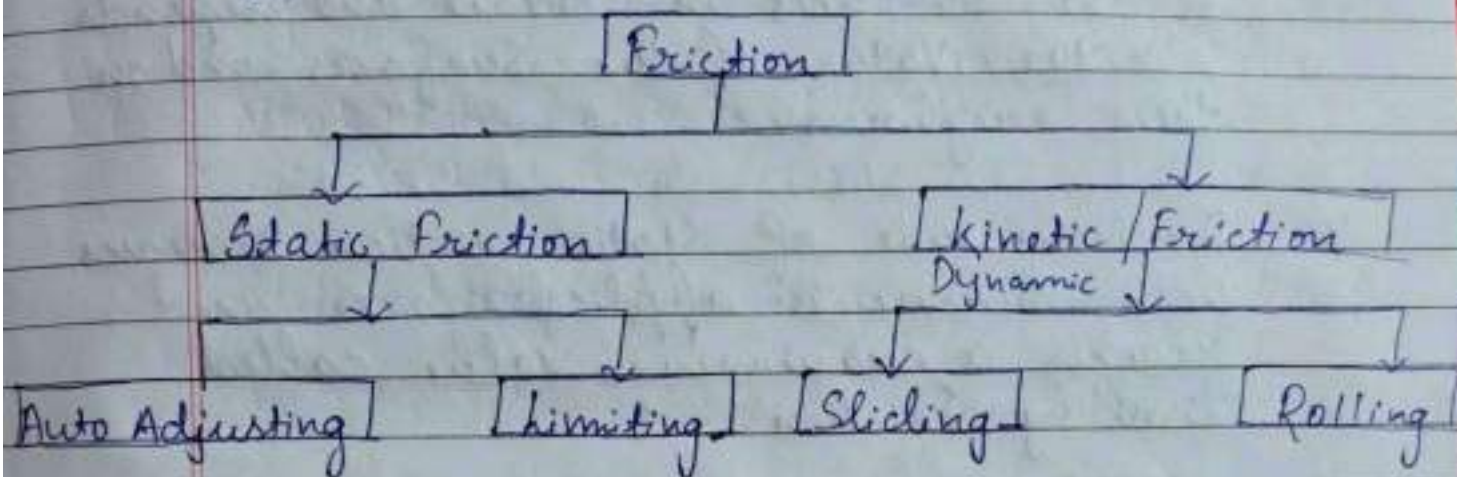 Friction
Static Friction
Kinetic / Friction
Dynamic
Auto Adjusting
Limiting
Sliding
Rolling